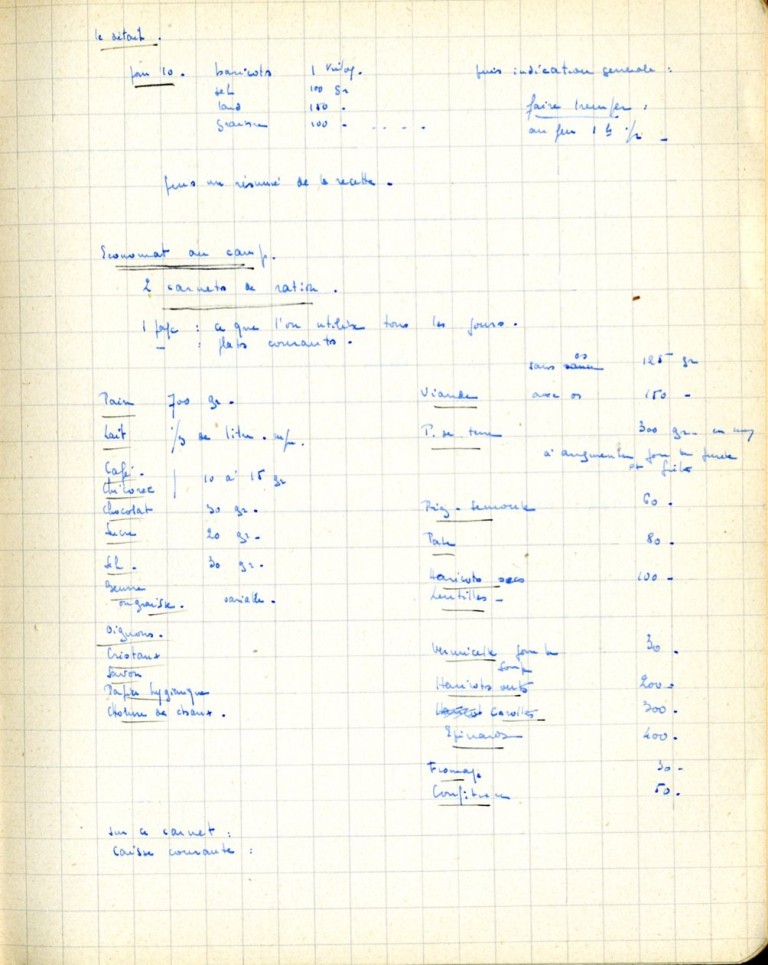 le détail.
pour 10. haricots 1 kilog. puis indication generale :
sel 100 gr
lard 150 . faire tremper :
graisse 100 - . . . . au feu 1 h 1/2 -
puis un résumé de la recette .
Economat au camp.
2 carnets de ration .
1 page : ce que l'on utilise tous les jours .
- : plats courants .
sans os 125 gr
Pain 700 gr . Viande avec os 150 -
Lait 1/3 de litre . P. de terre 300 gr.
à augmenter pour la purée
et frites
Café .
Chicorée 10 à 15 gr
Chocolat 30 gr . Riz . Semoule 60 .
Sucre 20 gr . Pate 80 .
Sel . 30 gr .
Beurre Haricots secs 100 -
ou graisse . variable . Lentilles -
Oignons .
Cristaux Vermicelle pour la 30 .
soupe
Savon
Papier hygienique Haricots verts 200 .
Chlorure de chaux . Carottes 300 .
Epinards 400 .
Fromage 30 -
Confiture 50 .
sur ce carnet :
Caisse courante :